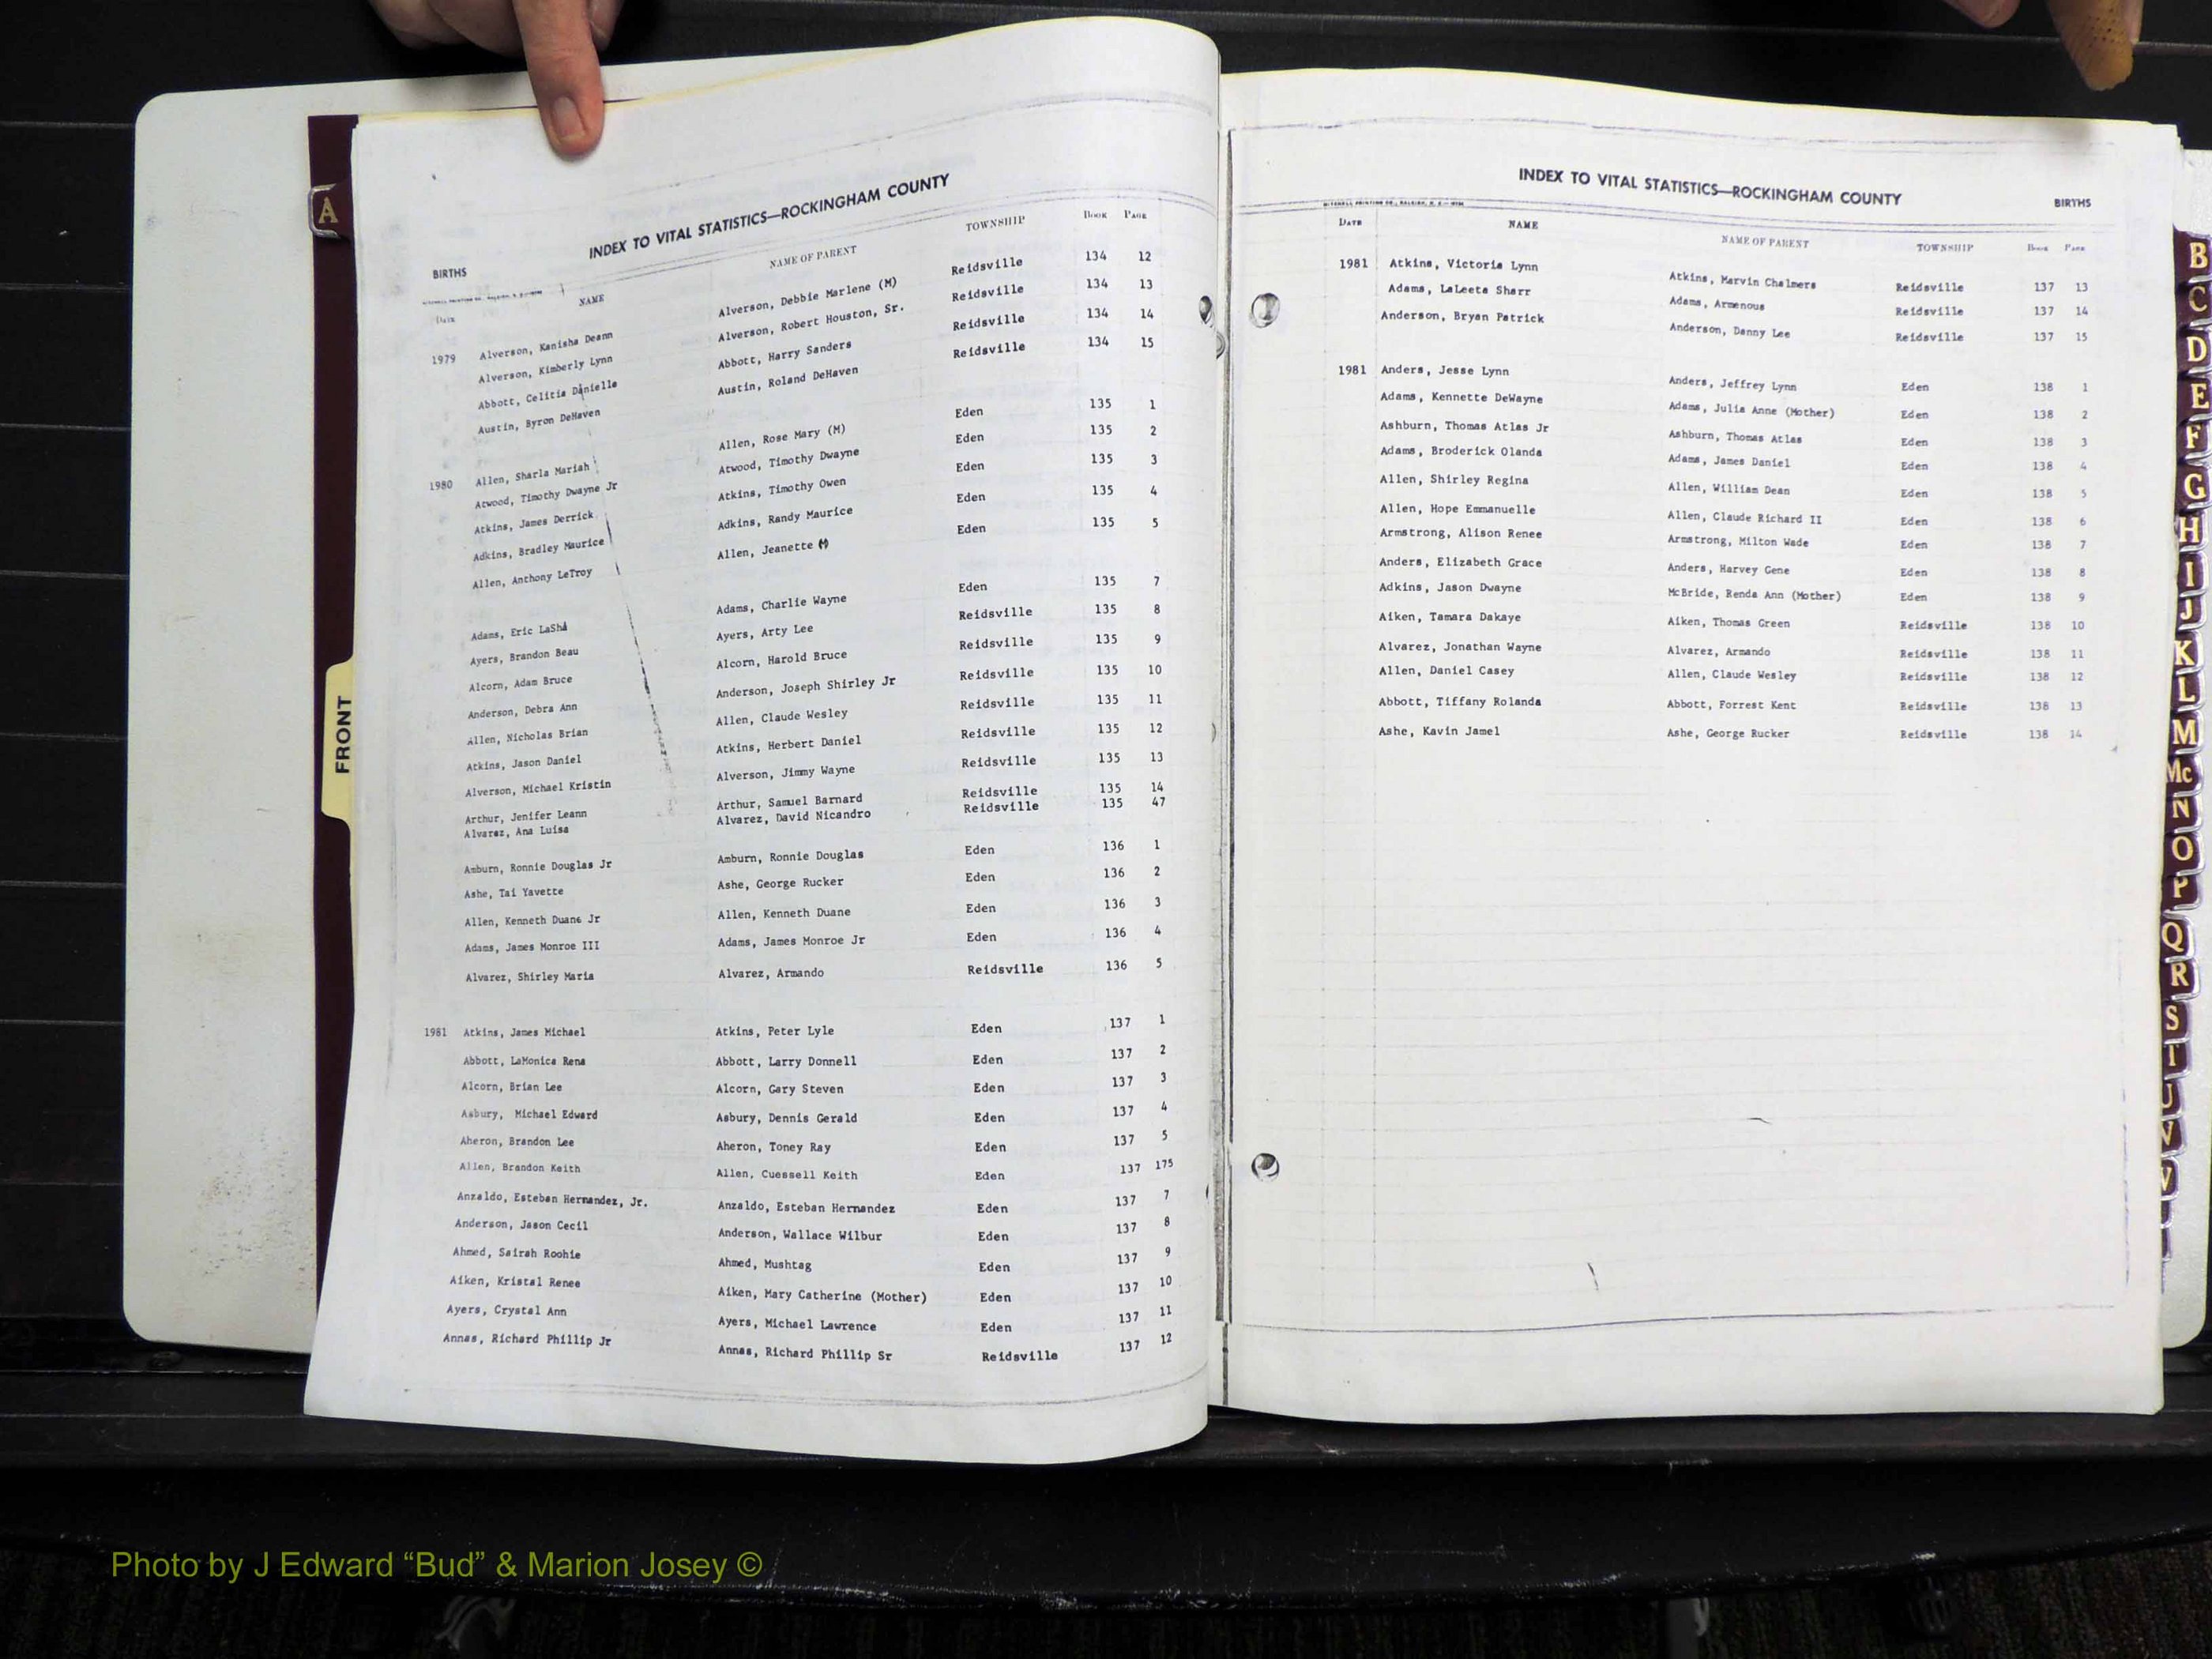 INDEX TO VITAL STATISTICS—ROCKINGHAM COUNTY
BIRTHS
Date NAME NAME OF PARENT TOWNSHIP Book Page
1979 Alverson, Kanisha Deann Alverson, Debbie Marlene (M) Reidsville 134 12
Alverson, Kimberly Lynn Alverson, Robert Houston, Sr. Reidsville 134 13
Abbott, Celitia Danielle Abbott, Harry Sanders Reidsville 134 14
Austin, Byron DeHaven Austin, Roland DeHaven Reidsville 134 15
1980 Allen, Sharla Mariah Allen, Rose Mary (M) Eden 135 1
Atwood, Timothy Dwayne Jr Atwood, Timothy Dwayne Eden 135 2
Atkins, James Derrick Atkins, Timothy Owen Eden 135 3
Adkins, Bradley Maurice Adkins, Randy Maurice Eden 135 4
Allen, Anthony LeTroy Allen, Jeanette (M) Eden 135 5
Adams, Eric LaSha Adams, Charlie Wayne Eden 135 7
Ayers, Brandon Beau Ayers, Arty Lee Reidsville 135 8
Alcorn, Adam Bruce Alcorn, Harold Bruce Reidsville 135 9
Anderson, Debra Ann Anderson, Joseph Shirley Jr Reidsville 135 10
Allen, Nicholas Brian Allen, Claude Wesley Reidsville 135 11
Atkins, Jason Daniel Atkins, Herbert Daniel Reidsville 135 12
Alverson, Michael Kristin Alverson, Jimmy Wayne Reidsville 135 13
Arthur, Jenifer Leann Arthur, Samuel Barnard Reidsville 135 14
Alvarez, Ana Luisa Alvarez, David Nicandro Reidsville 135 47
Amburn, Ronnie Douglas Jr Amburn, Ronnie Douglas Eden 136 1
Ashe, Tai Yavette Ashe, George Rucker Eden 136 2
Allen, Kenneth Duane Jr Allen, Kenneth Duane Eden 136 3
Adams, James Monroe III Adams, James Monroe Jr Eden 136 4
Alvarez, Shirley Maria Alvarez, Armando Reidsville 136 5
1981 Atkins, James Michael Atkins, Peter Lyle Eden 137 1
Abbott, LaMonica Rena Abbott, Larry Donnell Eden 137 2
Alcorn, Brian Lee Alcorn, Gary Steven Eden 137 3
Asbury, Michael Edward Asbury, Dennis Gerald Eden 137 4
Aheron, Brandon Lee Aheron, Toney Ray Eden 137 5
Allen, Brandon Keith Allen, Cuessell Keith Eden 137 175
Anzaldo, Esteban Hernandez, Jr. Anzaldo, Esteban Hernandez Eden 137 7
Anderson, Jason Cecil Anderson, Wallace Wilbur Eden 137 8
Ahmed, Sairah Roohie Ahmed, Mushtag Eden 137 9
Aiken, Kristal Renee Aiken, Mary Catherine (Mother) Eden 137 10
Ayers, Crystal Ann Ayers, Michael Lawrence Eden 137 11
Annas, Richard Phillip Jr Annas, Richard Phillip Sr Reidsville 137 12
INDEX TO VITAL STATISTICS—ROCKINGHAM COUNTY
BIRTHS
Date NAME NAME OF PARENT TOWNSHIP Book Page
1981 Atkins, Victoria Lynn Atkins, Marvin Chalmers Reidsville 137 13
Adams, LaLeeta Sharr Adams, Armenous Reidsville 137 14
Anderson, Bryan Patrick Anderson, Danny Lee Reidsville 137 15
1981 Anders, Jesse Lynn Anders, Jeffrey Lynn Eden 138 1
Adams, Kennette DeWayne Adams, Julia Anne (Mother) Eden 138 2
Ashburn, Thomas Atlas Jr Ashburn, Thomas Atlas Eden 138 3
Adams, Broderick Olanda Adams, James Daniel Eden 138 4
Allen, Shirley Regina Allen, William Dean Eden 138 5
Allen, Hope Emmanuelle Allen, Claude Richard II Eden 138 6
Armstrong, Alison Renee Armstrong, Milton Wade Eden 138 7
Anders, Elizabeth Grace Anders, Harvey Gene Eden 138 8
Adkins, Jason Dwayne McBride, Renda Ann (Mother) Eden 138 9
Aiken, Tamara Dakaye Aiken, Thomas Green Reidsville 138 10
Alvarez, Jonathan Wayne Alvarez, Armando Reidsville 138 11
Allen, Daniel Casey Allen, Claude Wesley Reidsville 138 12
Abbott, Tiffany Rolanda Abbott, Forrest Kent Reidsville 138 13
Ashe, Kavin Jamel Ashe, George Rucker Reidsville 138 14
A
FRONT
B
C
D
E
F
G
H
I
J
K
L
M
Mc
N
O
P
Q
R
S
T
U
V
W
Photo by J Edward “Bud” & Marion Josey ©